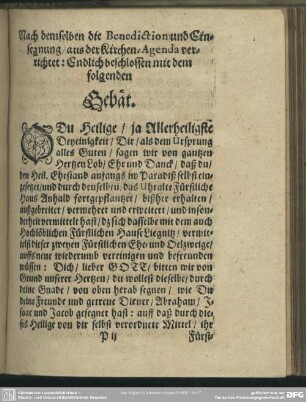 Nach demselben die Benediction und Ein-
segnung / aus der Kirchen-Agenda ver-
richtet: Endlich beschlossen mit dem
folgenden
Gebät.
O Du Heilige / ja Allerheiligste
Dreyeinigkeit / Dir / als dem Ursprung
alles Guten / sagen wir von gantzen
Hertzen Lob / Ehr und Danck / daß du /
den Heil. Ehestand anfangs im Paradiß selbst ein-
gesetzet / und durch denselben / das Uhralte Fürstliche
Haus Anhalt fortgepflantzet / bißher erhalten /
außgebreitet / vermehret und erweitert / und inson-
derheit vermittelt hast / dz sich dasselbe mit dem auch
Hochlöblichen Fürstlichen Hause Liegnitz / vermit-
telst dieser zweyen Fürstlichen Ehe und Oelzweige /
auffs neue wiederumb vereinigen und befreunden
müssen: Dich / lieber GOTT / bitten wir von
Grund unserer Hertzen / du wollest dieselbe / durch
deine Gnade / von oben herab segnen / wie Du
deine Freunde und getreue Diener / Abraham / J-
saac und Jacob gesegnet hast: auff daß durch die-
ses Heilige von dir selbst verordnete Mittel / ihr
P ij
Fürst-